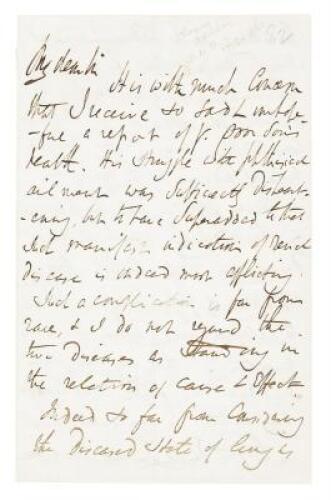 My dear Sir
It is with much Concern
that I receive so sad &
a report of yr. poor Son's
health. His struggle with phthisical
ailment was sufficiently disheart
-ening, but to have superadded to that
such manifest indication of renal
disease is indeed most afflicting.
Such a complication is far from
rare, & I do not regard the
two diseases as standing in
the relation of cause & Effect
Indeed so far from Considering
the diseased State of lungs